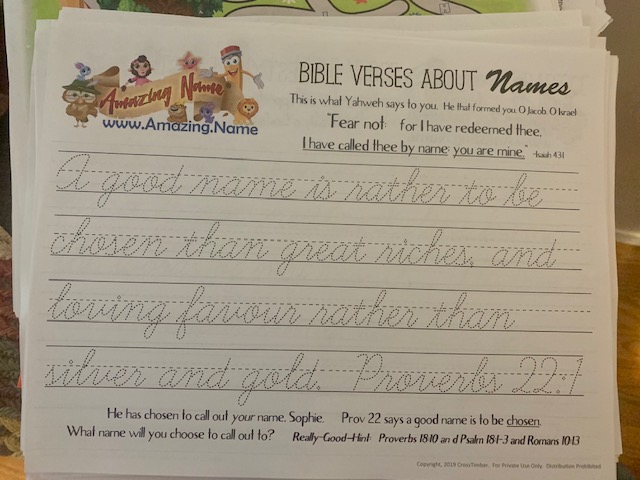 Amazing Name
www.Amazing.Name
BIBLE VERSES ABOUT Names
This is what Yahweh says to you. He that formed you, O Jacob, O Israel:
"Fear not: for I have redeemed thee,
I have called thee by name; you are mine." -Isaiah 43:1
A good name is rather to be
chosen than great riches, and
loving favour rather than
silver and gold. Proverbs 22:1
He has chosen to call out your name, Sophie. Prov 22 says a good name is to be chosen.
What name will you choose to call out to? Really-Good-Hint: Proverbs 18:10 an d Psalm 18:1-3 and Romans 10:13
Copyright, 2019 CrossTimber. For Private Use Only. Distribution Prohibited